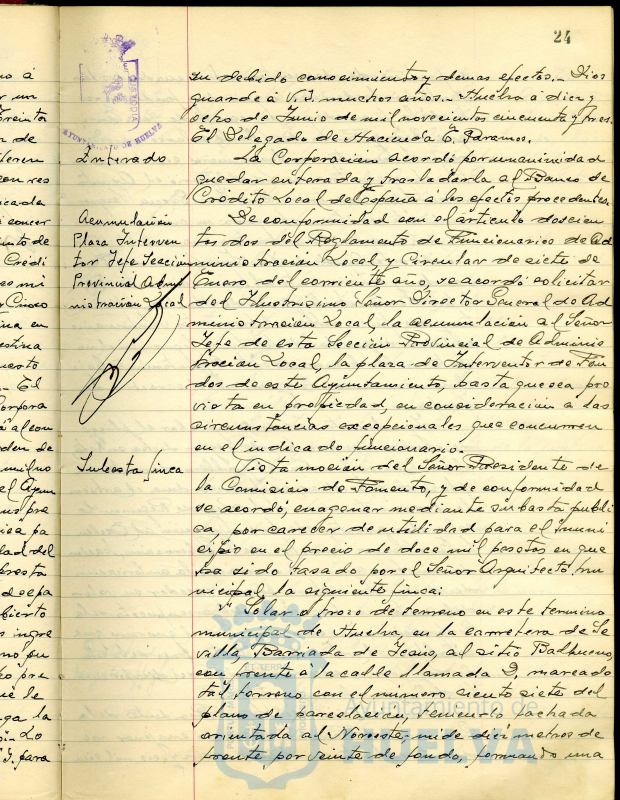 24
su debido conocimiento y demas efectos.- Dios
guarde á V.I. muchos años.- Huelva á diez y
ocho de Junio de mil novecientos cincuenta y tres.
El Delegado de Hacienda E. Paramos.
Enterado
La Corporacion acordó por unanimidad
quedar enterada y trasladarla al Banco de
Crédito Local de España á los efectos procedentes.
Acumulación
Plaza Interven
tor Jefe Sección
Provincial Admi
nistración Local
De conformidad con el articulo doscien
tos dos del Reglamento de Funcionarios de Ad
ministración Local y Circular de siete de
Enero del corriente año, se acordó solicitar
del Ilustrisimo Señor Director General de Ad
ministración Local, la acumulación al Señor
Jefe de esta Sección Provincial de Adminis
tración Local, la plaza de Interventor de Fon
dos de este Ayuntamiento, hasta que sea pro
vista en propiedad, en consideración a las
circunstancias excepcionales que concurren
en el indicado funcionario.
Subasta finca
Vista moción del Señor Presidente de
la Comisión de Fomento, y de conformidad
se acordó, enagenar mediante subasta publi
ca, por carecer de utilidad para el muni
cipio en el precio de doce mil pesetas en que
ha sido tasado por el Señor Arquitecto mu
nicipal la siguiente finca:
Solar ó trozo de terreno en este termino
municipal de Huelva, en la carretera de Se
villa, Barriada de Icano, al sitio Balbueno,
con frente á la calle llamada D, marcado
tal terreno con el número ciento siete del
plano de parcelación, teniendo fachada
orientada al Noroeste- mide diez metros de
frente por veinte de fondo, formando una
AYUNTAMIENTO DE HUELVA
Ayuntamiento de
HUELVA